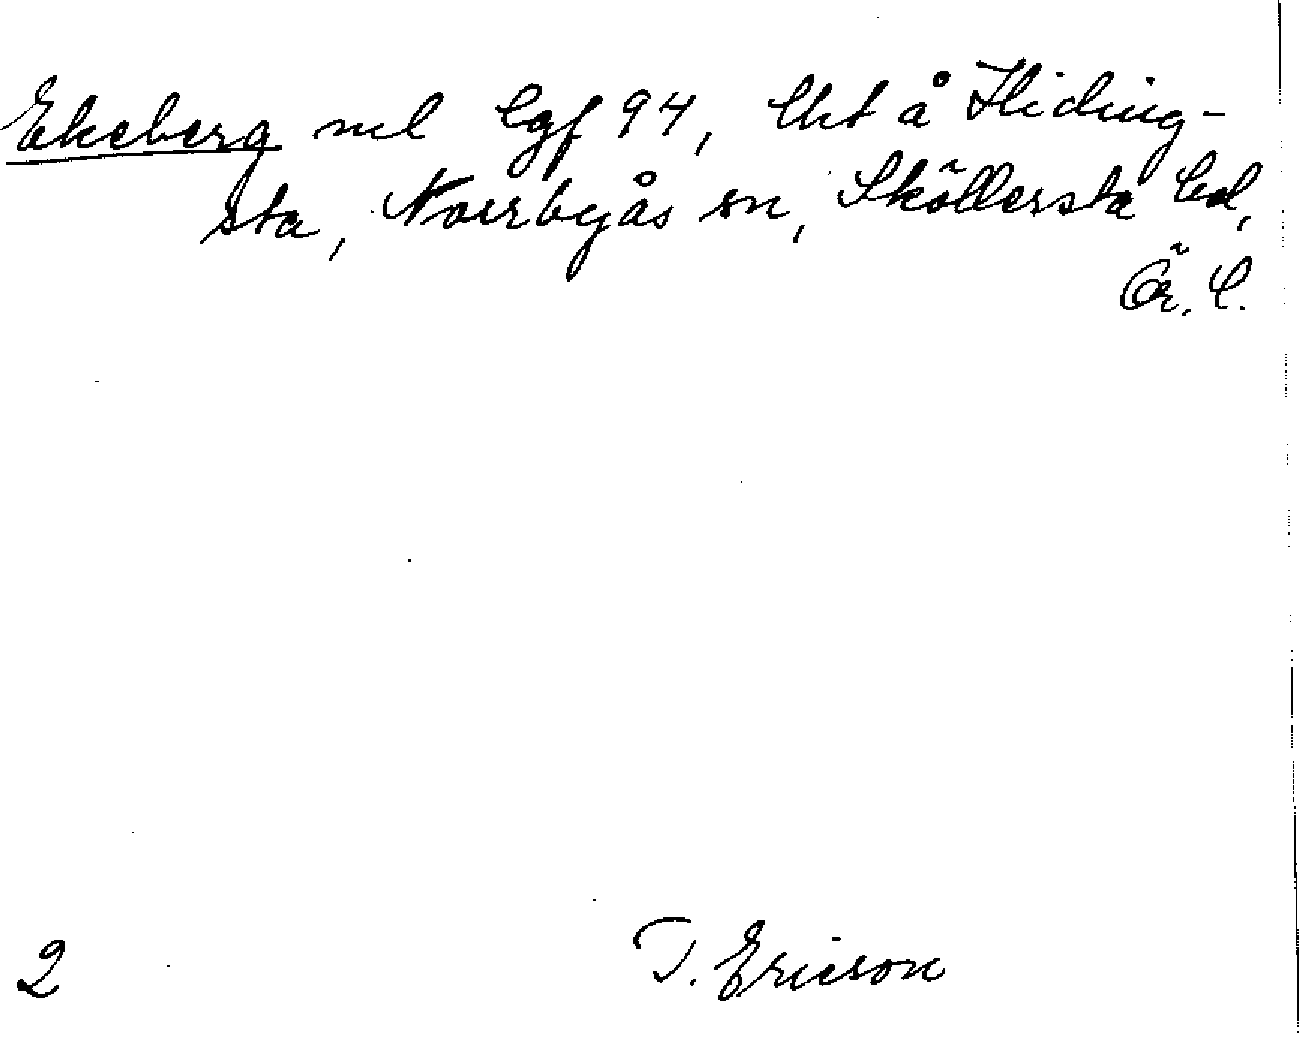 Ekeberg nel lgf 94, lht å Hiding-
sta, Norrbyås sn, Sköllersta hd,
Ör. l.
2 T. Ericson